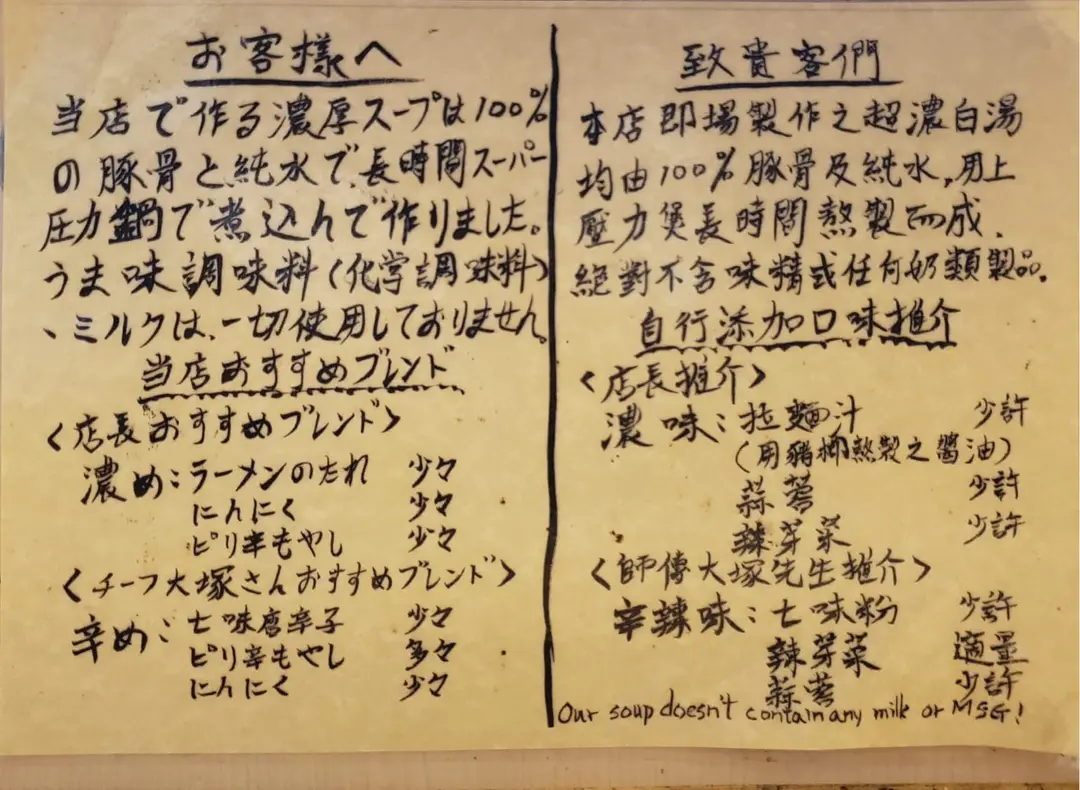 お客様へ
当店で作る濃厚スープは100%
の豚骨と純水で、長時間スーパー
圧力鍋で煮込んで作りました。
うま味調味料(化学調味料)
、ミルクは、一切使用しておりません。
当店おすすめブレンド
<店長おすすめブレンド>
濃め:ラーメンのたれ 少々
にんにく 少々
ピリ辛もやし 少々
<チーフ大塚さんおすすめブレンド>
辛め:七味唐辛子 少々
ピリ辛もやし 多々
にんにく 少々
致貴客們
本店即場製作之超濃白湯
均由100%豚骨及純水,用上
壓力煲長時間熬製而成.
絕對不含味精或任何奶類製品.
自行添加口味推介
<店長推介>
濃味:拉麵汁 少許
(用豬挷熬製之醬油)
蒜蓉 少許
辣芽菜 少許
<師傅大塚先生推介>
辛辣味:七味粉 少許
辣芽菜 適量
蒜蓉 少許
Our soup doesn't contain any milk or MSG!